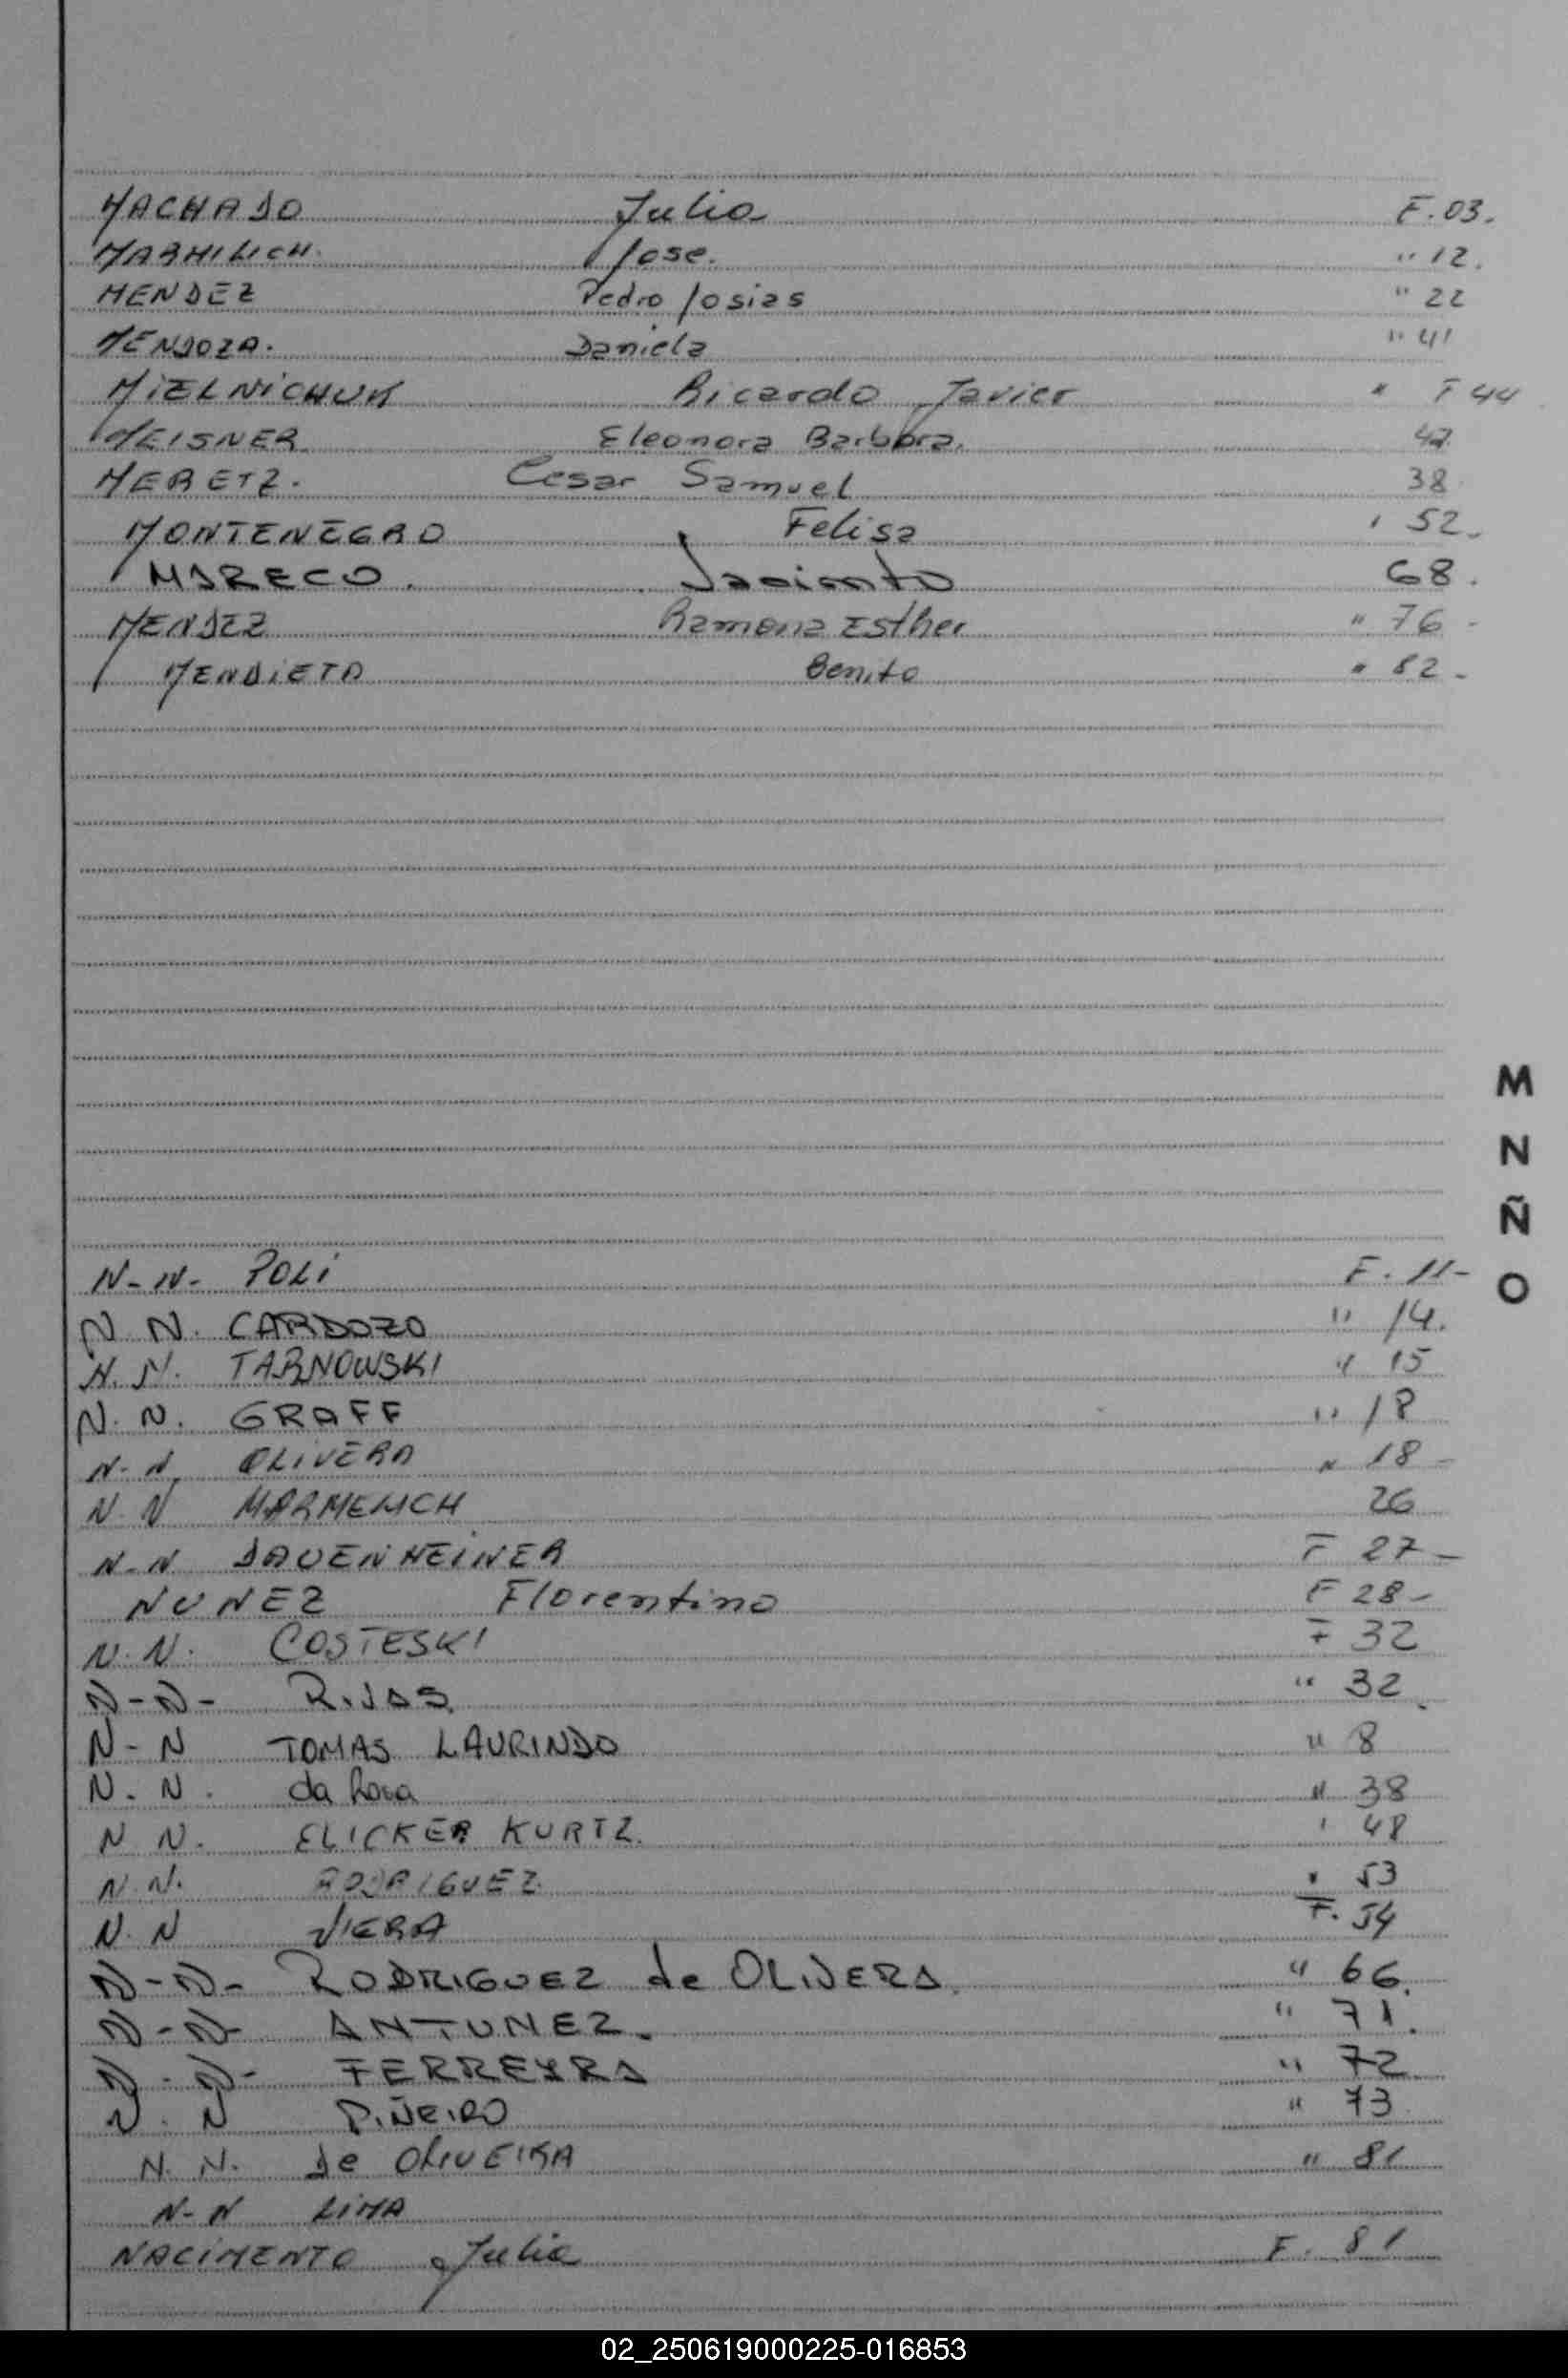 MACHADO Julio F. 03.
MARMILICH. Jose. " 12.
MENDEZ Pedro Josias " 22
MENDOZA. Daniela " 41
MiELNiCHUK Ricardo Javier " F 44
MEISNER Eleonora Barbara. 47
MERETZ. Cesar Samuel 38
MONTENEGRO Felisa " 52.
MARECO. Jacinto 68.
MENDEZ Ramona Esther " 76 -
MENDiETA Benito " 82 -
M
N
Ñ
O
N-N- POLi F. 11-
N N. CARDOZO " 14.
N. N. TARNOWSKI " 15
N. N. GRAFF " 18
N-N. OLiVERA " 18 -
N. N MARMELICH 26
N-N DAUENHEiNER F 27 -
NUNEZ Florentino F 28 -
N. N. COSTESKI F 32
N-N- RiJAS " 32.
N-N TOMAS LAURINDO " 8
N. N. da Rosa " 38
N N. ELICKER KURTZ. " 48
N. N. RODRIGUEZ. " 53
N. N VIERA F. 54
N-N- RODRIGUEZ de OLIVERA. " 66.
N-N- ANTUNEZ. " 71.
N-N- FERREYRA " 72
N. N PiÑEiRO " 73
N. N. de OLIVEIRA " 81
N-N LiMA
NACiMENTO Julio F. 81
02_250619000225-016853